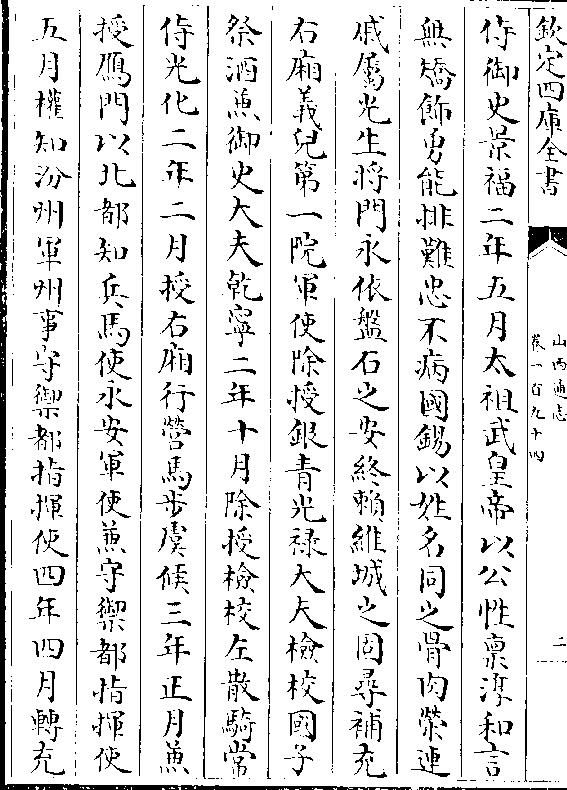 欽定四庫全書
山西通志
卷一百九十四
二
侍御史景福二年五月太祖武皇帝以公性禀淳和言
無矯飾勇能排難忠不病國錫以姓名同之骨肉榮連
戚屬光生將門永依盤石之安終賴維城之固尋補充
右廂義兒第一院軍使除授銀青光禄大夫檢校國子
祭酒兼御史大夫乾寧二年十月除授檢校左散騎常
侍光化二年二月授右廂行營馬步虞候三年正月兼
授鴈門以北都知兵馬使永安軍使兼守禦都指揮使
五月權知汾州軍州事守禦都指揮使四年四月轉充